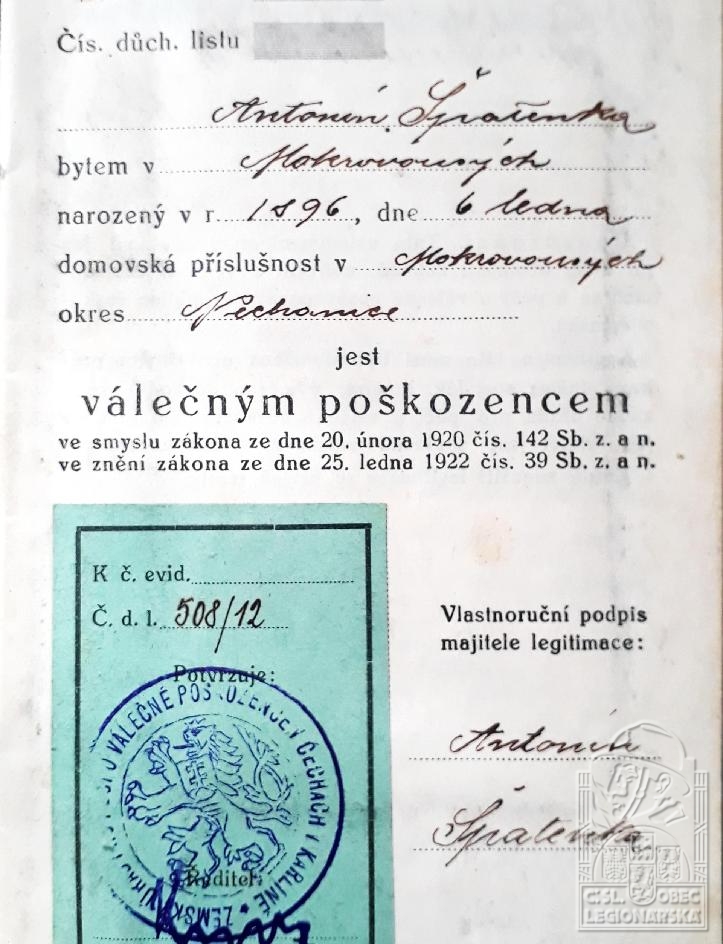 Čís. důch. listu
Antonín Špatenka
bytem v Mokrovousých
narozený v r. 1896, dne 6 ledna
domovská příslušnost v Mokrovousých
okres Nechanice
jest
válečným poškozencem
ve smyslu zákona ze dne 20. února 1920 čís. 142 Sb. z. a n.
ve znění zákona ze dne 25. ledna 1922 čís. 39 Sb. z. a n.
K č. evid.
Č. d. l. 508/12
Potvrzuje:
O VÁLEČNÉ POŠKOZENCE V ČECHÁCH V KARLÍNĚ
ZEMSK
Ředitel:
Vlastnoruční podpis
majitele legitimace:
Antonín
Špatenka
ČSL. OBEC
LEGIONÁŘSKÁ